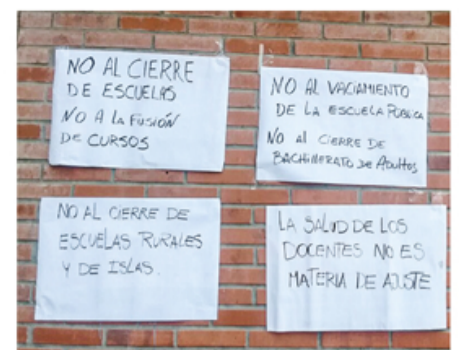 NO AL CIERRE
DE ESCUELAS
NO A LA FUSIÓN
DE CURSOS
NO AL VACIAMIENTO
DE LA ESCUELA PÚBLICA
NO AL CIERRE DE
BACHILLERATO DE ADULTOS
NO AL CIERRE DE
ESCUELAS RURALES
Y DE ISLAS.
LA SALUD DE LOS
DOCENTES NO ES
MATERIA DE AJUSTE